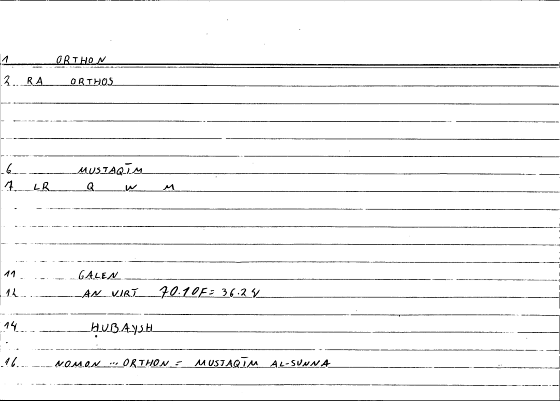 1 ORTHON
2 RA ORTHOS
6 MUSTAQĪM
7 LR Q W M
11 GALEN
12 AN VIRT 70.10F = 36.2
14 ḤUBAYSH
16 NOMON ... ORTHON = MUSTAQĪM AL-SUNNA